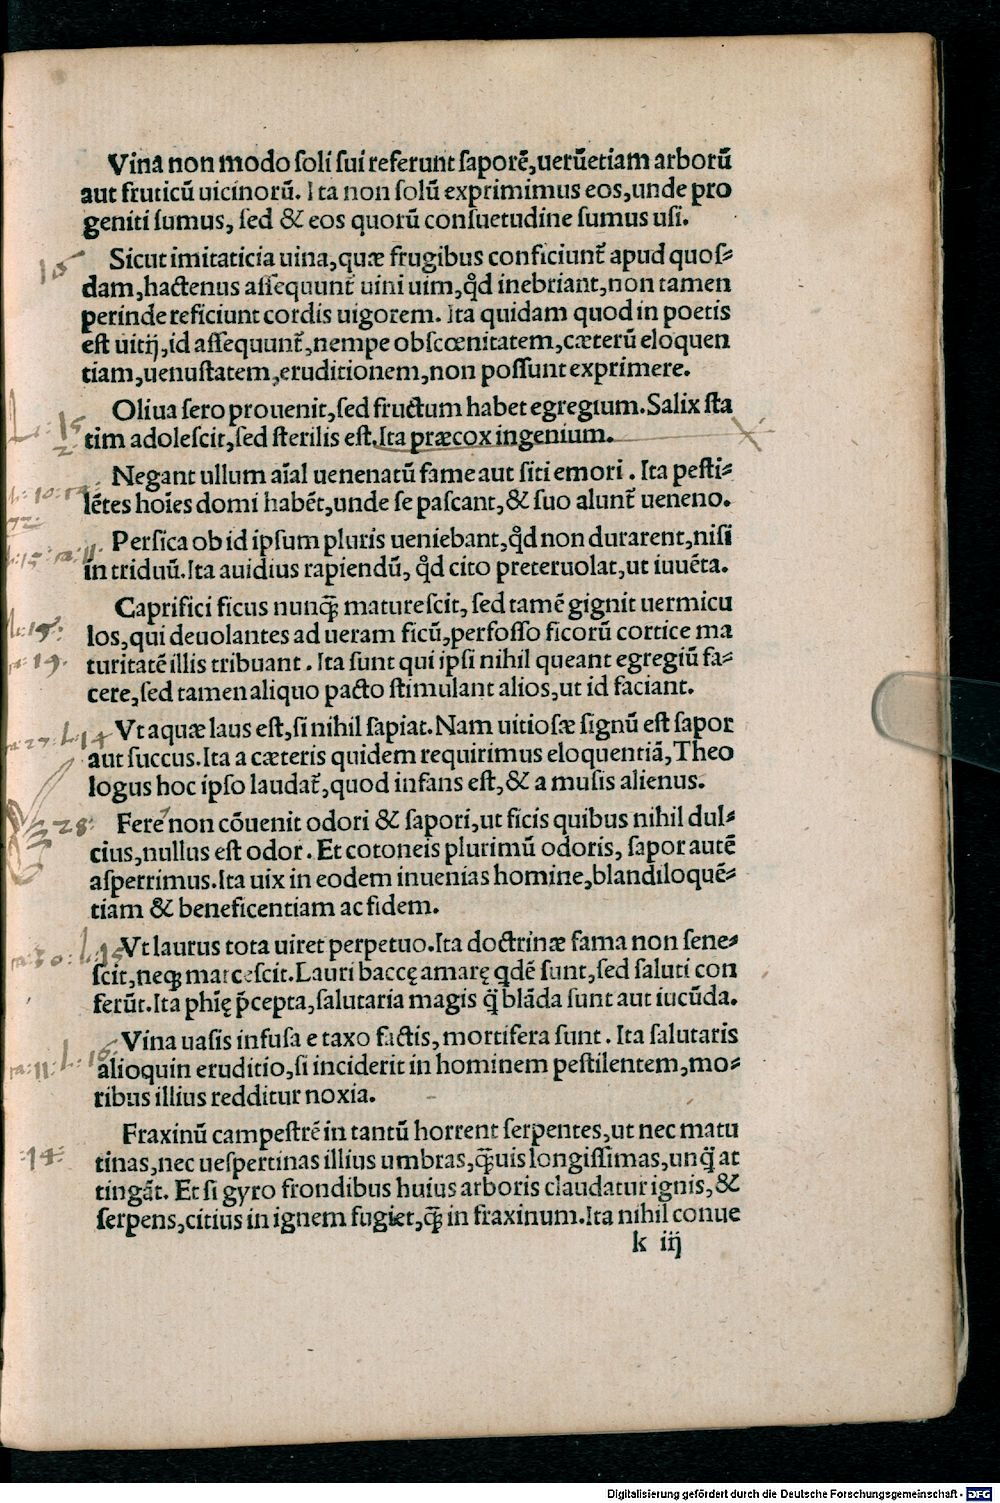 Vina non modo soli sui referunt saporē,uerūetiam arborū
aut fruticū uicinorū. Ita non solū exprimimus eos,unde pro
geniti sumus, sed & eos quorū consuetudine sumus usi.
16
Sicut imitaticia uina,quæ frugibus conficiunt᷑ apud quos⸗
dam,hactenus assequunt᷑ uini uim,qd̕ inebriant,non tamen
perinde reficiunt cordis uigorem. Ita quidam quod in poetis
est uitij,id assequunt᷑,nempe obscœnitatem,cæterū eloquen
tiam,uenustatem,eruditionem,non possunt exprimere.
L: 15
2
Oliua sero prouenit,sed fructum habet egregium.Salix sta
tim adolescit,sed sterilis est.Ita præcox ingenium.
Negant ullum aīal uenenatū fame aut siti emori . Ita pesti⸗
lētes hoīes domi habēt,unde se pascant,& suo alunt᷑ ueneno.
:15: ra: 11.
Persica ob id ipsum pluris ueniebant,qd̕ non durarent,nisi
in triduū.Ita auidius rapiendū, qd̕ cito preteruolat,ut iuuēta.
Caprifici ficus nunq̄ maturescit, sed tamē gignit uermicu
los,qui deuolantes ad ueram ficū,perfosso ficorū cortice ma
turitatē illis tribuant . Ita sunt qui ipsi nihil queant egregiū fa⸗
cere,sed tamen aliquo pacto stimulant alios,ut id faciant.
ra: 27. L: 14
Vt aquæ laus est,si nihil sapiat.Nam uitiosæ signū est sapor
aut succus.Ita a cæteris quidem requirimus eloquentiā,Theo
logus hoc ipso laudat᷑,quod infans est,& a musis alienus.
28:
Fere non cōuenit odori & sapori,ut ficis quibus nihil dul⸗
cius,nullus est odor . Et cotoneis plurimū odoris, sapor autē
asperrimus.Ita uix in eodem inuenias homine,blandiloquē⸗
tiam & beneficentiam ac fidem.
ra:30: L:15
Vt laurus tota uiret perpetuo.Ita doctrinæ fama non sene⸗
scit,neqꝫ marcescit.Lauri baccę amarę qdē sunt,sed saluti con
ferūt.Ita phīę p̄cepta,salutaria magis q̄ blāda sunt aut iucūda.
ra:11: L: 16.
Vina uasis infusa e taxo factis, mortifera sunt . Ita salutaris
alioquin eruditio,si inciderit in hominem pestilentem,mo⸗
ribus illius redditur noxia.
:14:
Fraxinū campestrē in tantū horrent serpentes,ut nec matu
tinas,nec uespertinas illius umbras,q̄uis longissimas,unq̄ at
tingāt. Et si gyro frondibus huius arboris claudatur ignis,&
serpens,citius in ignem fugiet,q̄ in fraxinum.Ita nihil conue
k iij
Digitalisierung gefördert durch die Deutsche Forschungsgemeinschaft - DFG